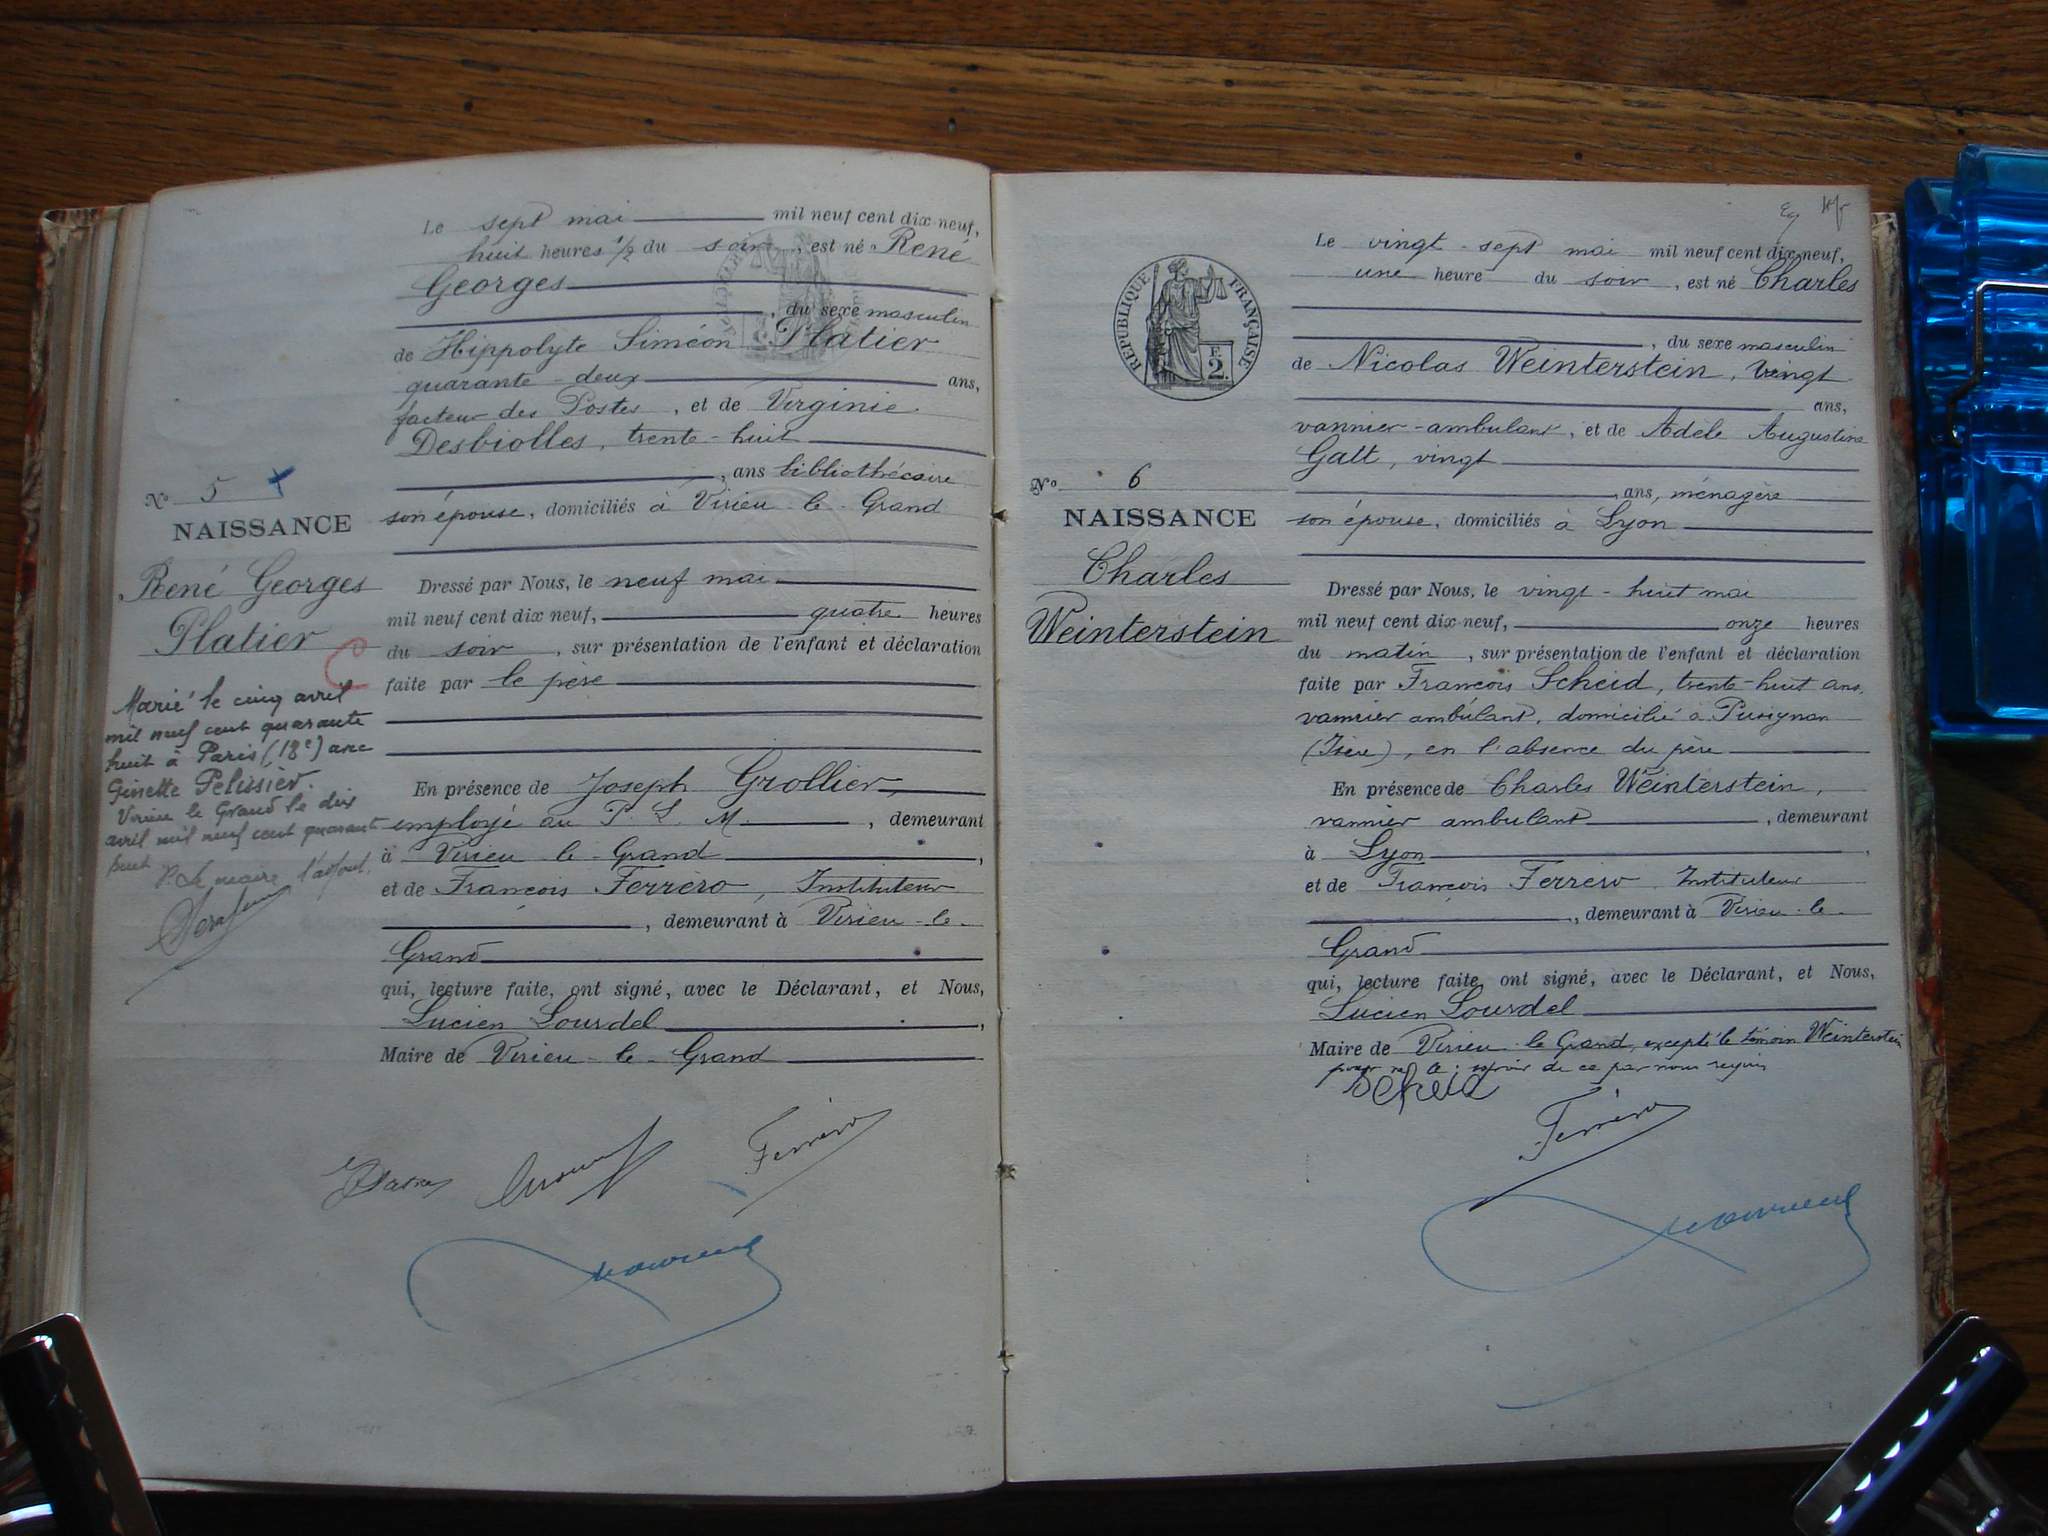 Le sept mai mil neuf cent dix-neuf,
huit heures 1/2 du soir, est né René
Georges
, du sexe masculin
de Hippolyte Siméon Platier
quarante-deux ans,
facteur des Postes, et de Virginie
Desbiolles, trente-huit
, ans bibliothécaire
son épouse, domiciliés à Virieu-le-Grand
No 5
NAISSANCE
René Georges
Platier
Marié le cinq avril
mil neuf cent quarante
huit à Paris (18e) avec
Ginette Pelissier.
Virieu le Grand le dix
avril mil neuf cent quarant
huit
P. Le maire l'adjoint,
Dressé par Nous, le neuf mai
mil neuf cent dix neuf, quatre heures
du soir, sur présentation de l'enfant et déclaration
faite par le père
En présence de Joseph Grollier,
employé au P. L. M., demeurant
à Virieu-le-Grand,
et de François Ferrero, Instituteur
, demeurant à Virieu-le-
Grand
qui, lecture faite, ont signé, avec le Déclarant, et Nous,
Lucien Lourdel,
Maire de Virieu-le-Grand
Ferrero
RÉPUBLIQUE FRANÇAISE
F. 2.
Le vingt-sept mai mil neuf cent dix-neuf,
une heure du soir, est né Charles
, du sexe masculin
de Nicolas Weinterstein, vingt
ans,
vannier-ambulant, et de Adèle Augustine
Galt, vingt
, ans, ménagère
son épouse, domiciliés à Lyon
No 6
NAISSANCE
Charles
Weinterstein
Dressé par Nous, le vingt-huit mai
mil neuf cent dix-neuf, onze heures
du matin, sur présentation de l'enfant et déclaration
faite par François Scheid, trente-huit ans,
vannier ambulant, domicilié à Pusignan
(Isère), en l'absence du père
En présence de Charles Weinterstein,
vannier ambulant, demeurant
à Lyon,
et de François Ferrero, Instituteur
, demeurant à Virieu-le-
Grand
qui, lecture faite, ont signé, avec le Déclarant, et Nous,
Lucien Lourdel
Maire de Virieu-le Grand, excepté le témoin Weinterstein
pour ne savoir de ce par nous requis
Scheid
Ferrero